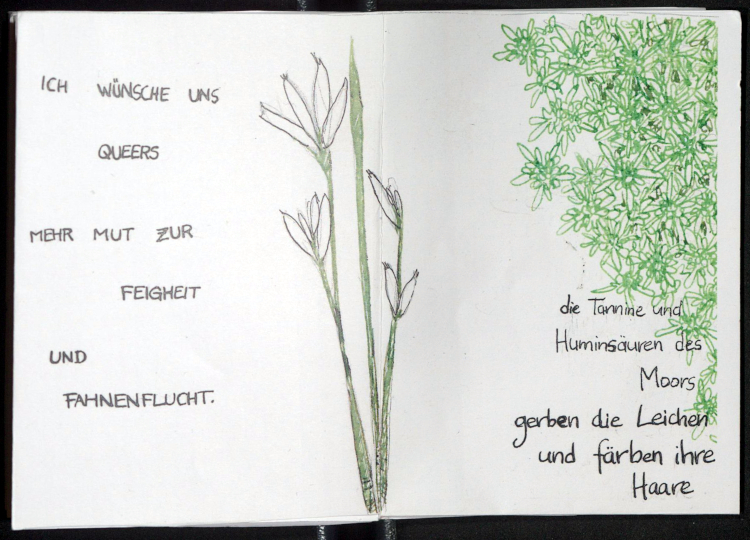 ICH WÜNSCHE UNS
QUEERS
MEHR MUT ZUR
FEIGHEIT
UND
FAHNENFLUCHT.
die Tannine und
Huminsäuren des
Moors
gerben die Leichen
und färben ihre
Haare